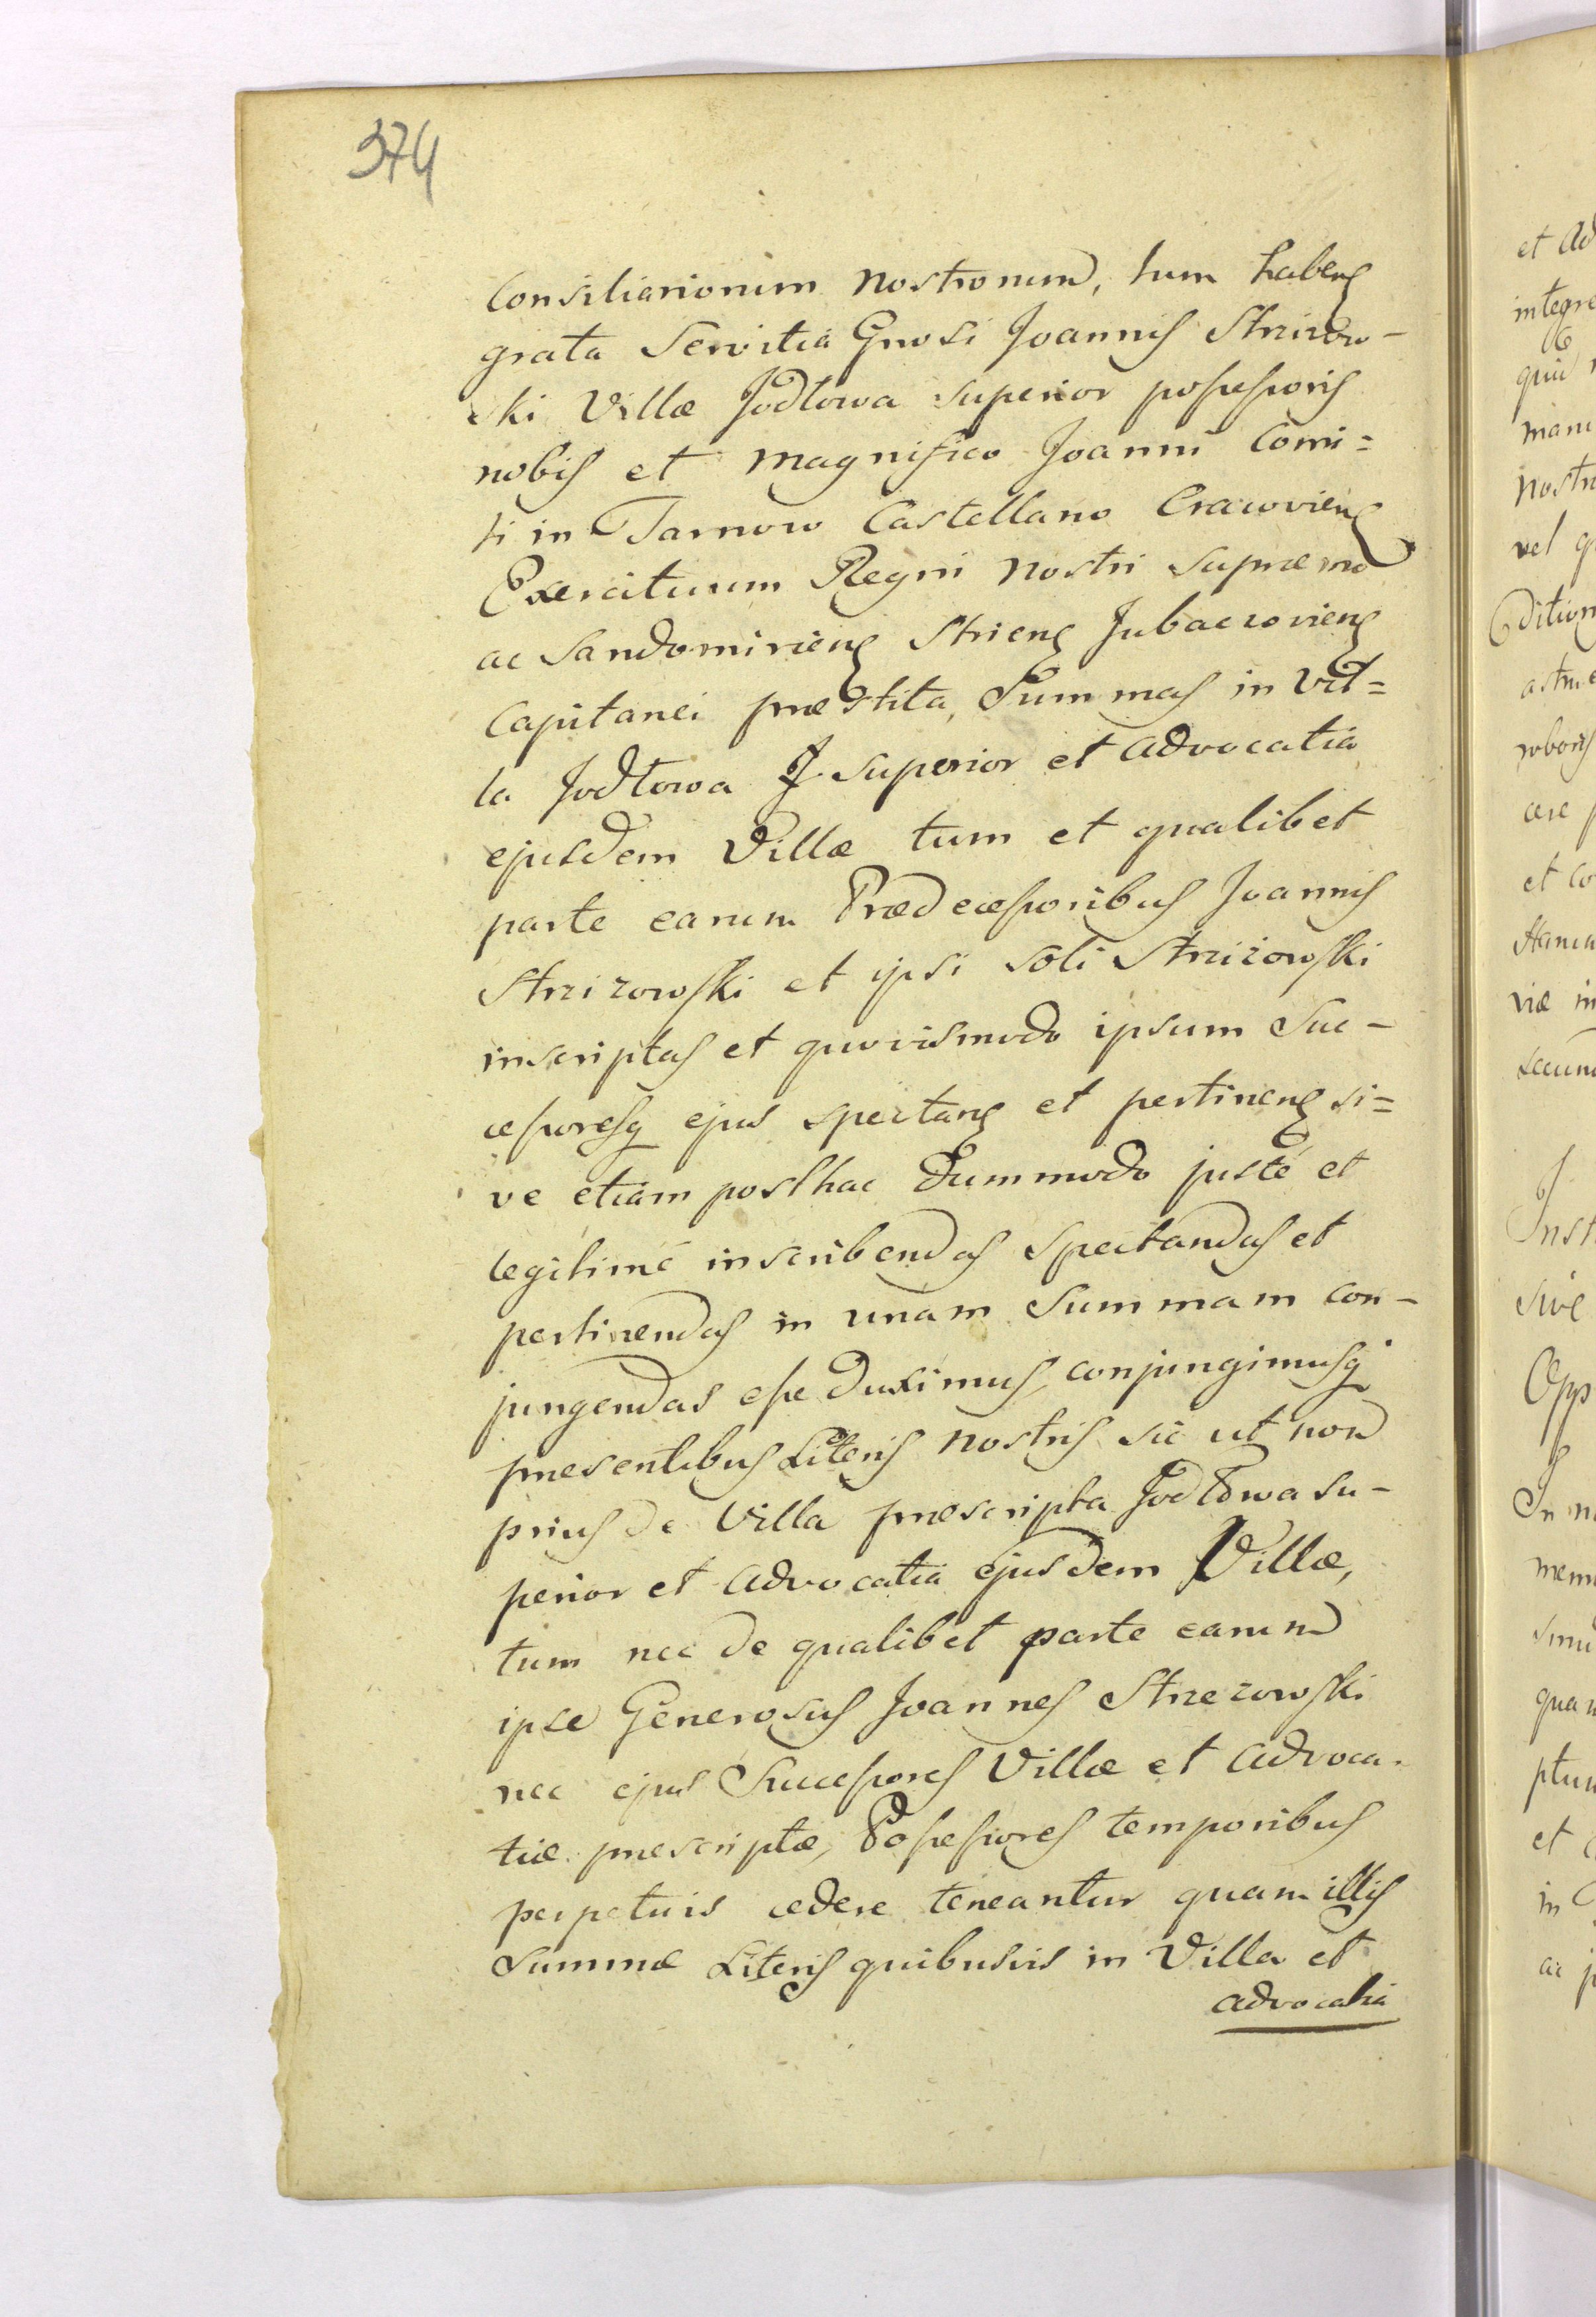 374
Consiliariorum Nostrorum, tum habens
grata Servitia Gnosi Joannis Strizow-
ski Villæ Jodłowa superior possessoris
nobis et Magnifico Joanni Comi=
ti in Tarnow Castellano Cracoviens
Exercituum Regni Nostri Supremo
ac Sandomiriens Striens Lubaczoviens
Capitanei præstita, Summas in Vil=
la Jodłowa J. Superior et Advocatia
ejusdem Villæ tum et qualibet
parte earum Prædecessoribus Joannis
Strzizowski et ipsi soli Strzizowski
inscriptas et quovismodo ipsum Suc-
cessoresq ejus spectans et pertinens si=
ve etiam posthac dummodo justé et
legitimé inscribendas spectandas et
pertinendas in unam Summam con-
jungendas esse duximus, conjungimusq
præsentibus Literis nostris sic ut non
prius de Villa præscripta Jodłowa su-
perior et Advocatia ejusdem Villæ,
tum nec de qualibet parte earum
ipse Generosus Joannes Strzezowski
nec ejus Successores Villæ et Advoca-
tiæ præscriptæ, Possessores temporibus
perpetuis cedere teneantur quam illis
Summæ Literis quibusvis in Villa et
Advocatia
et Ad
integre
quid
manu
Nostr
vel q
ditiom
roboris
et co
viæ in
secund
Inst
sive
Opp
In n
quan
ptum
et
in
ac